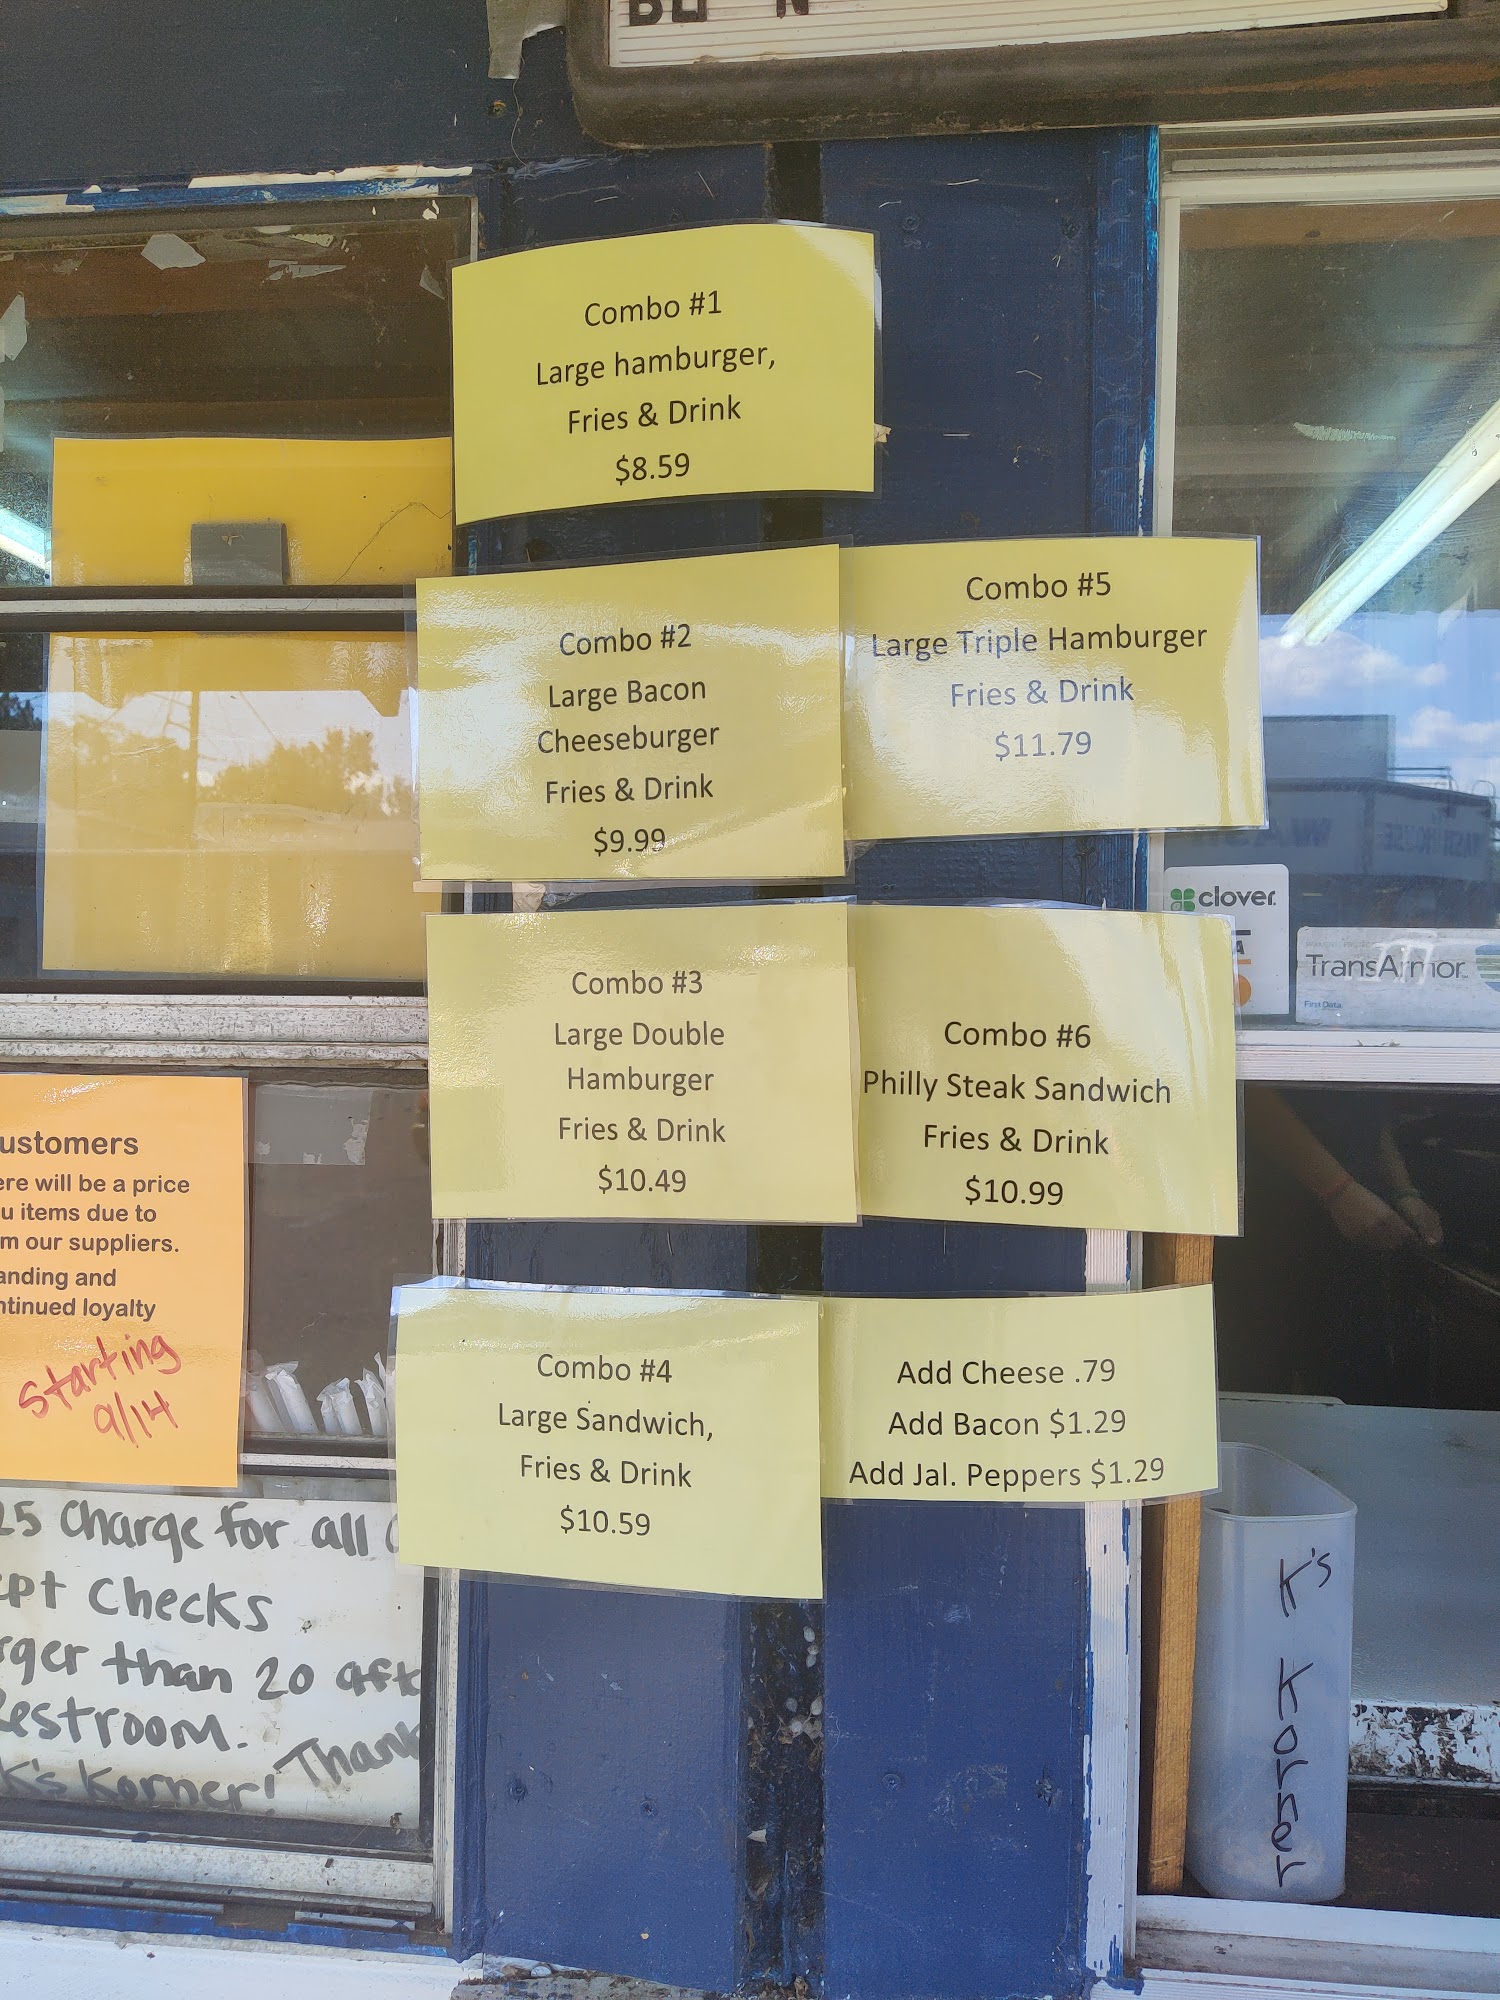 Combo #1
Large hamburger,
Fries & Drink
$8.59
Combo #2
Large Bacon
Cheeseburger
Fries & Drink
$9.99
Combo #5
Large Triple Hamburger
Fries & Drink
$11.79
Combo #3
Large Double
Hamburger
Fries & Drink
$10.49
Combo #6
Philly Steak Sandwich
Fries & Drink
$10.99
Combo #4
Large Sandwich,
Fries & Drink
$10.59
Add Cheese .79
Add Bacon $1.29
Add Jal. Peppers $1.29
clover
TransArmor
First Data
ustomers
ere will be a price
u items due to
m our suppliers.
anding and
ntinued loyalty
Starting
9/14
25 Charge for all
ept Checks
rger than 20 aft
Restroom.
K's Korner! Thank
K's Korner